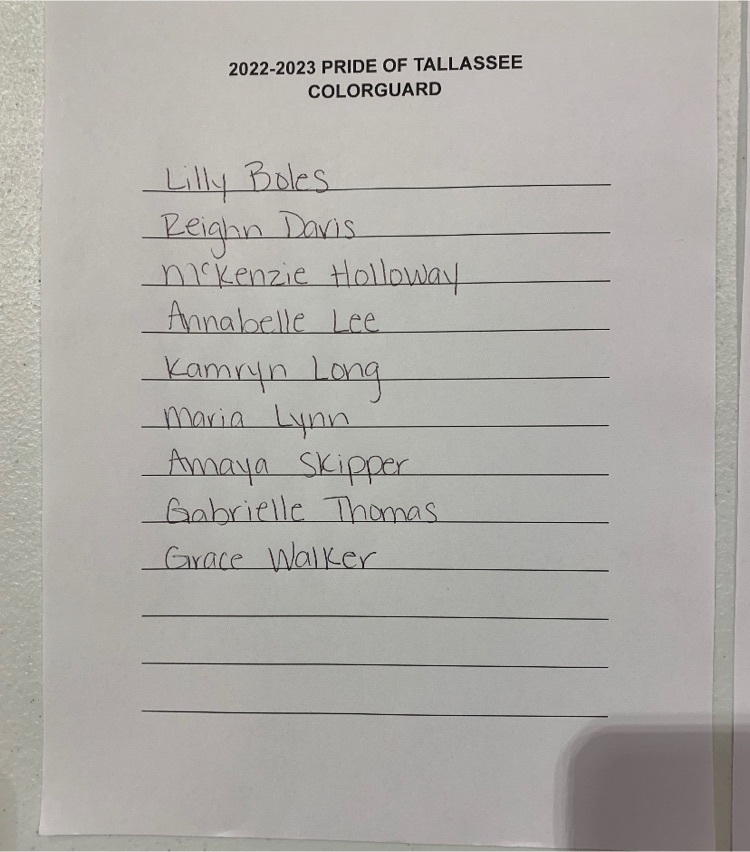 2022-2023 PRIDE OF TALLASSEE
COLORGUARD
Lilly Boles
Reighn Davis
McKenzie Holloway
Annabelle Lee
Kamryn Long
Maria Lynn
Amaya Skipper
Gabrielle Thomas
Grace Walker